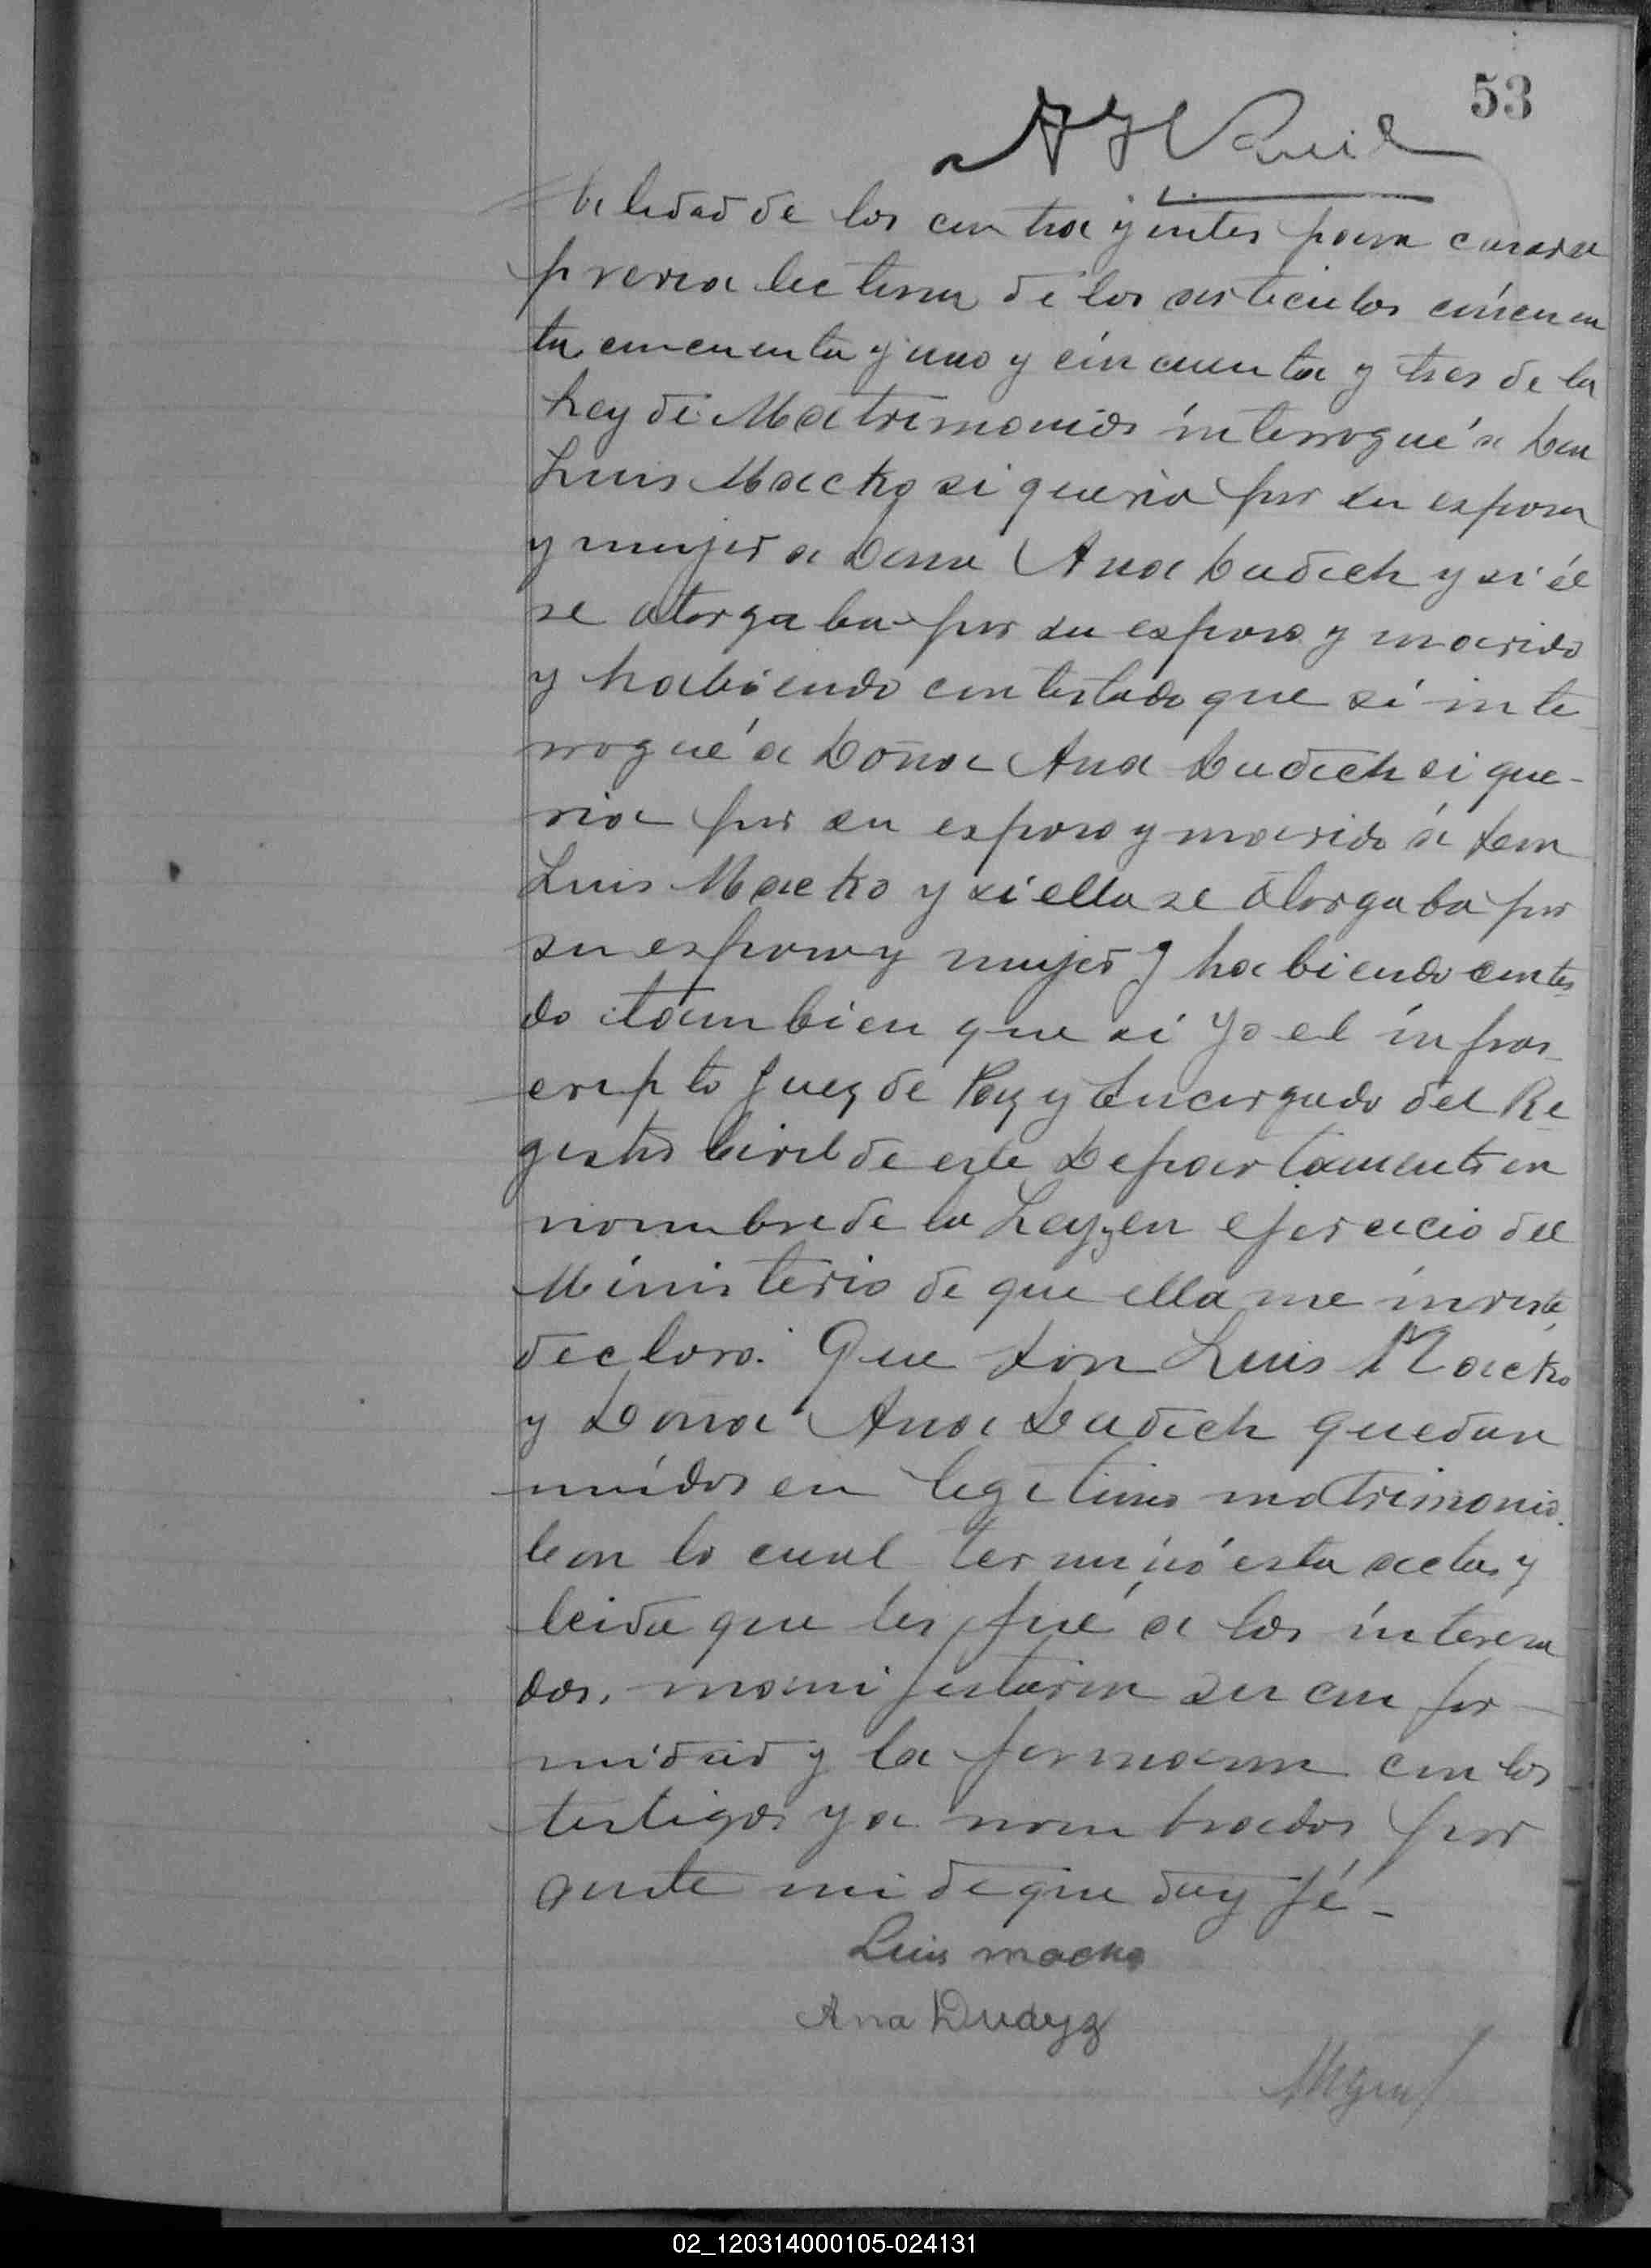 53
bilidad de los contrayentes para casarse
previa lectura de los articulos cincuen
ta cincuenta y uno y cincuenta y tres de la
Ley de Matrimonios interrogué a Don
Luis Macko si queria por su esposa
y mujer a Doña Ana Dudich y si él
se otorgaba por su esposo y marido
y habiendo contestado que sí inte
rrogué a Doña Ana Dudich si que-
ria por su esposo y marido á Don
Luis Macko y si ella se otorgaba por
su esposa y mujer y habiendo contes
do tambien que sí Yo el infras
cripto Juez de Paz y Encargado del Re
gistro Civil de este Departamento en
nombre de la Ley y en ejercicio del
Ministerio de que ella me inviste,
declaro: Que don Luis Macko
y Doña Ana Dudich quedan
unidos en legitimo matrimonio.
Con lo cual terminó esta acta y
leida que les fué a los interesa
dos, manifestaron su confor-
midad y la firmaron con los
testigos ya nombrados por
ante mi de que doy fé-
Luis macko
Ana Dudyz
02_120314000105-024131